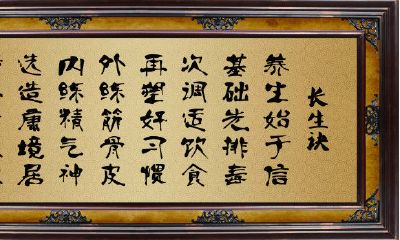 长生诀
养生始于信
基础先排毒
次调适饮食
再塑好习惯
外练筋骨皮
内练精气神
选造康境居